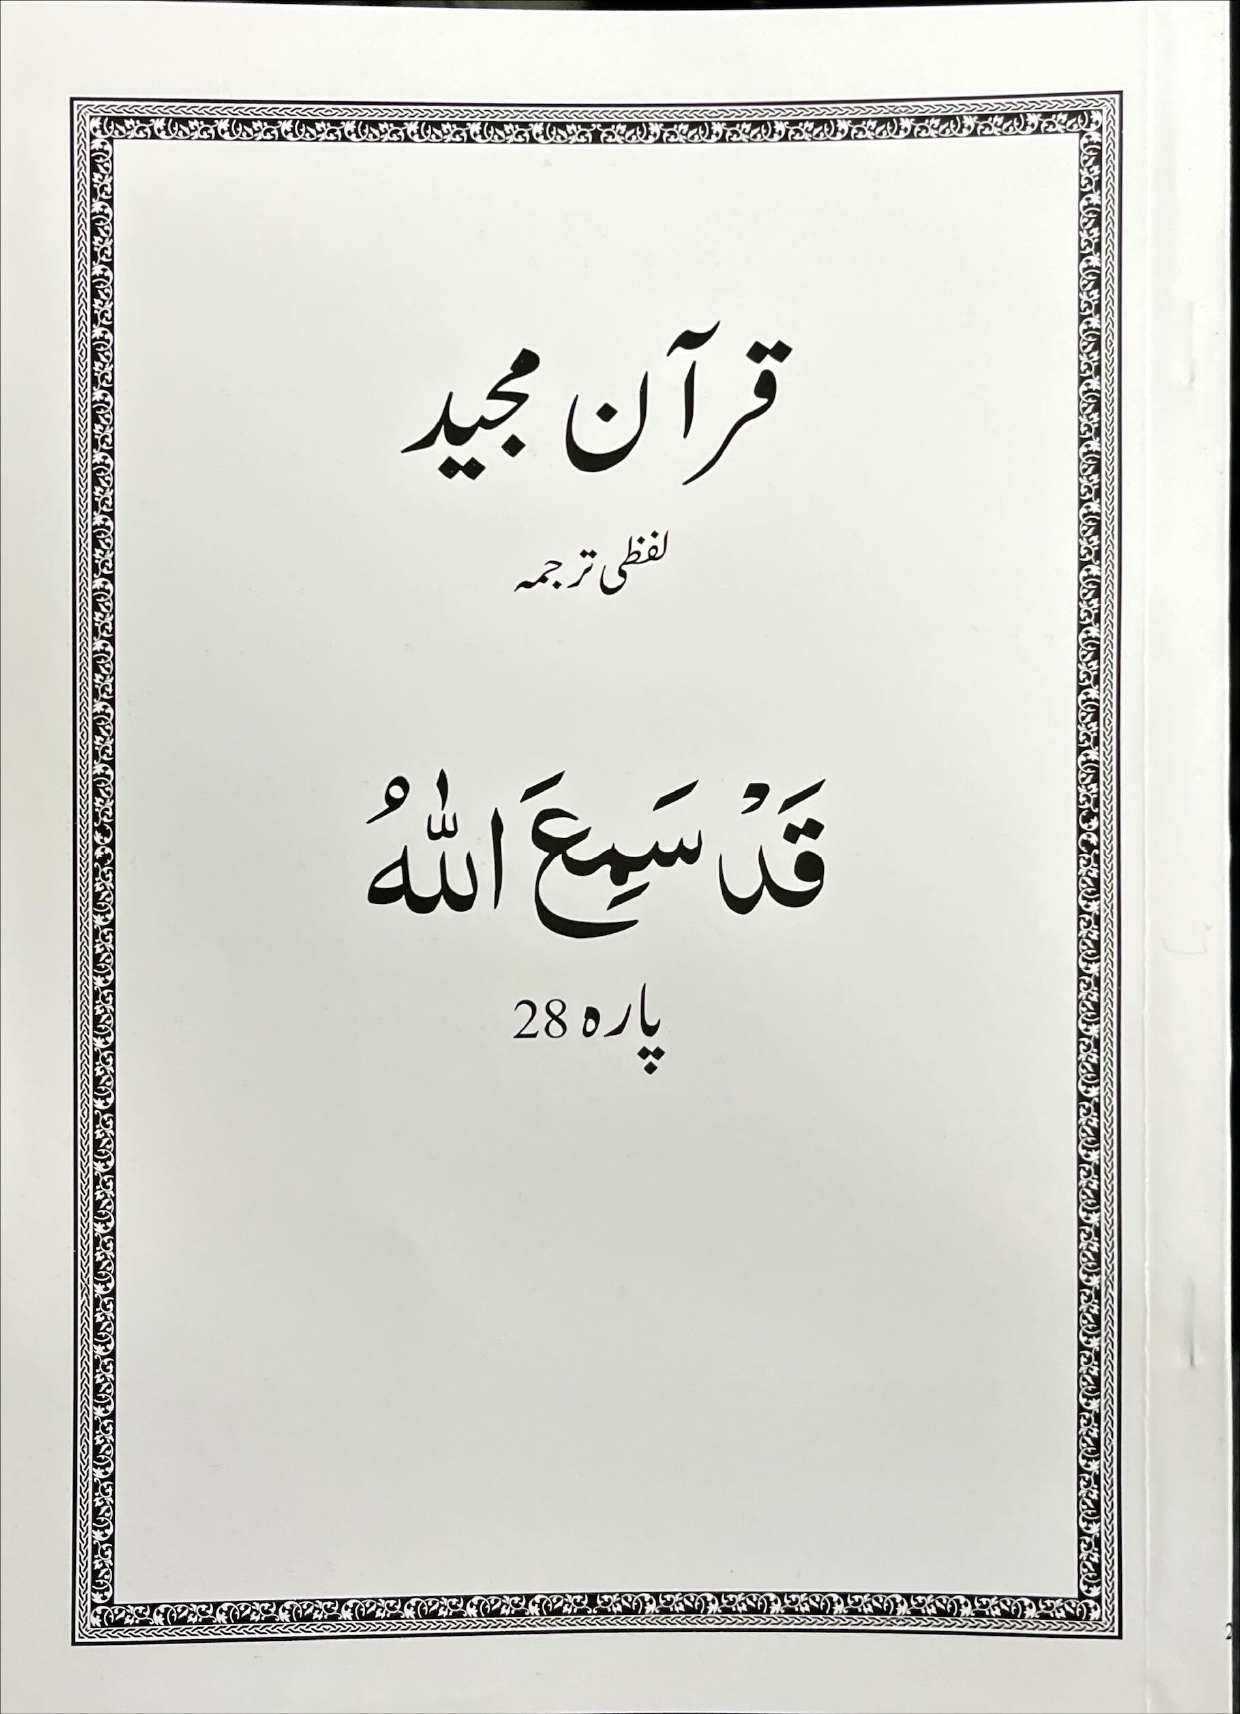 قرآن مجید
لفظی ترجمہ
قَدْ سَمِعَ اللّٰهُ
پارہ 28